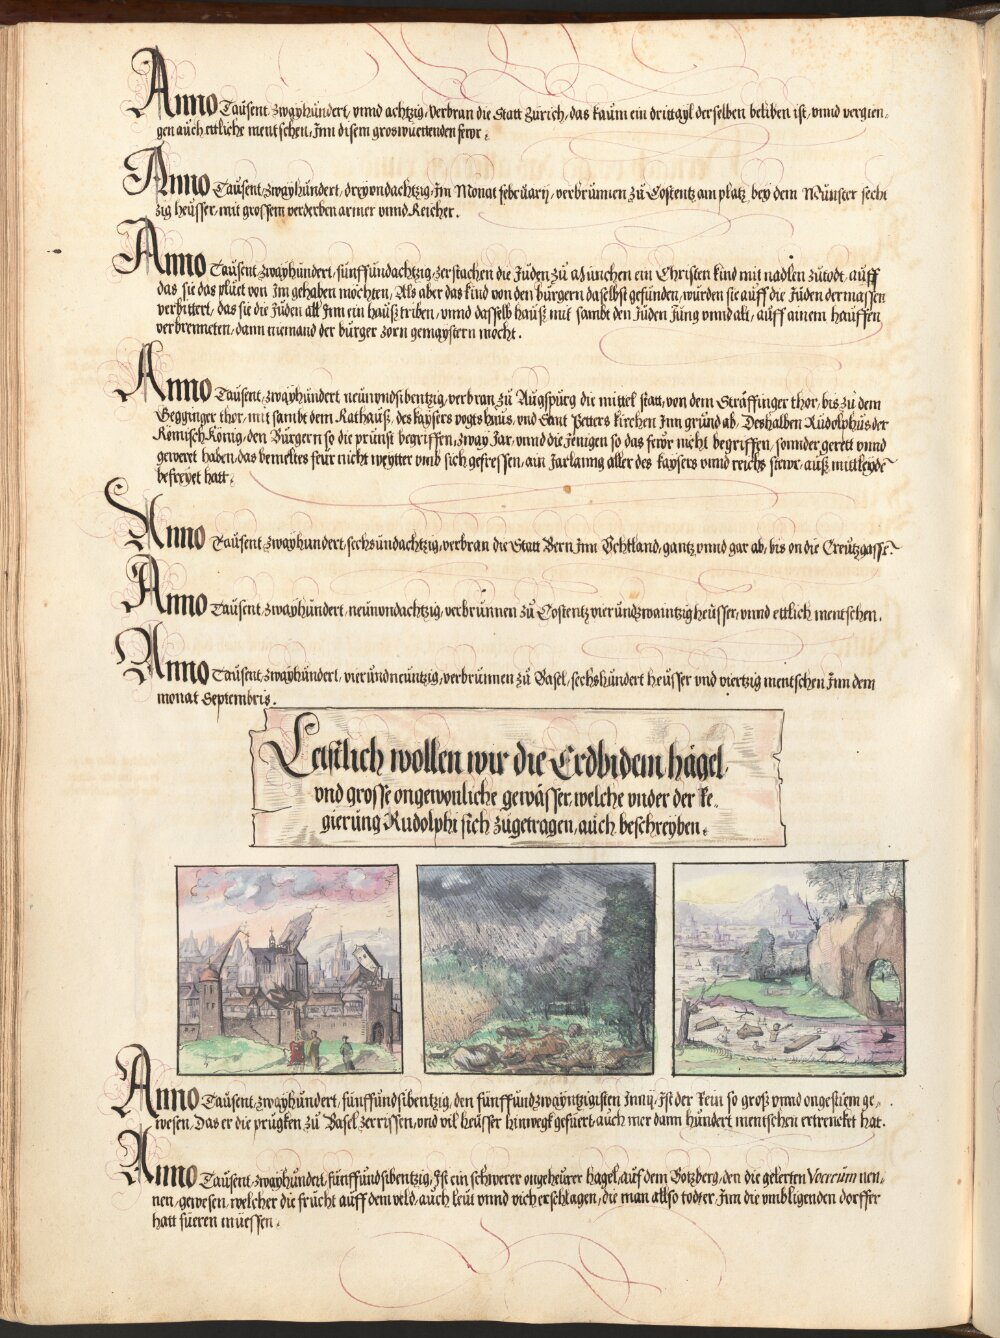 Anno Tausent zwayhundert, vnnd achtzig, verbran die Statt Zürich, das kaum ein drittayl derselben beliben ist, vnnd vergien,
gen auch ettliche mentschen, Inn disem groswüettenden fewr.
Anno Tausent, zwayhundert, dreyondachtzig, Im Monat februarij, verbrunnen zu Costentz am platz bey dem Münster sechtzig
zig heüsser, mit grossem verderben armer vnnd Reicher.
Anno Tausent, zwayhundert, fünffundachtzig, zerstachen die Juden zu München ein Christen kind mit nadlen zutodt, auff
das sie das pluet von Im gehaben möchten, Als aber das kind von den burgern daselbst gefunden, wurden sie auff die Juden dermassen
verbittert, das sie die Juden all Inn ein hauß triben, vnnd dasselb hauß mit sambt den Juden Jung vnnd alt, auff ainem hauffen
verbrenneten, dann niemand der burger zorn gemaystern mocht.
Anno Tausent, zwayhundert neünvndsibentzig, verbran zu Augspurg die mittel statt, von dem Sträffinger thor, bis zu dem
Gegginger thor, mit sambt dem Rathauß, des kaysers vogts haus, vnd Sant Petters kirchen Inn grund ab, Deshalben Rudolphus der
Römisch König, den Bürgern so die prunst begriffen, zway Jar, vnnd die Jenigen so das fewr nicht begriffen, sonnder gerett vnnd
geweret haben, das bemeltes feur nicht weytter vmb sich gefressen, ain Jarlanng aller des kaysers vnnd reichs stewr, auß mittleyden
befreyet hatt.
Anno Tausent zwayhundert, sechsundachtzig, verbran die Statt Bern Inn Ochtland, gantz vnnd gar ab, bis on die Creutzgasse.
Anno Tausent, zwayhundert, neünvndachtzig, verbrunnen zu Costentz vierundzwaintzig heüsser, vnnd ettlich mentschen.
Anno Tausent, zwayhundert, vierundneüntzig, verbrunnen zu Basel, sechshundert heüsser vnd viertzig mentschen Inn dem
monat Septembris.
Letstlich wollen wir die Erdbidem hägel,
vnd grosse ongewonliche gewässer, welche vnder der Re,
gierung Rudolphi sich zugetragen, auch beschreyben.
Anno Tausent, zwayhundert, fünffundsibentzig, den fünffundzwayntzigisten Junij, Ist der Rein so groß vnnd ongestüem ge,
wesen, Das er die prugken zu Basel zerrissen, vnd vil heüsser hinwegk gefüert, auch mer dann hundert mentschen ertrenckt hat.
Anno Tausent, zwayhundert fünffundsibentzig, Ist ein schwerer ongeheurer hagel, auf dem Botzberg, den die gelerten Vocetum nen,
nen, gewesen, welcher die frücht auff dem veld, auch leüt vnnd vich erschlagen, die man allso todter, Inn die vmbligenden dorffer
hatt füeren müessen.